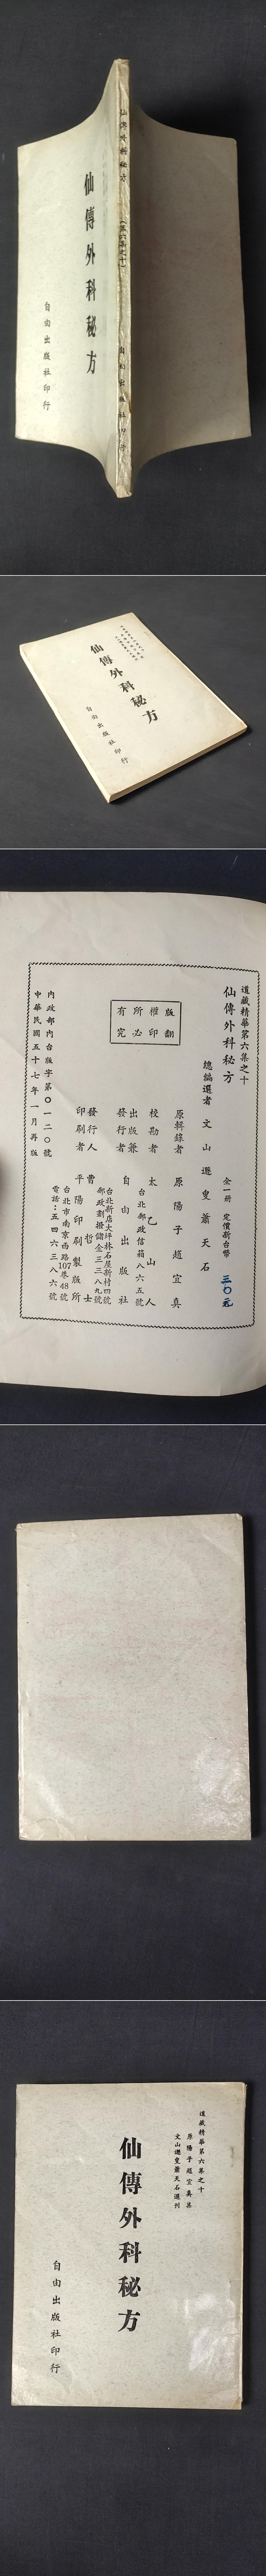 仙傳外科秘方
(第六集之十)
自由出版社印行
仙傳外科秘方
自由出版社印行
仙傳外科秘方
自由出版社印行
道藏精華第六集之十
仙傳外科秘方
全一冊 定價新台幣 三〇元
總編選者 文山遯叟蕭天石
原輯錄者 原陽子趙宜真
校勘者 太乙山人
出版兼發行者 自由出版社
台北郵政信箱八六五號
台北新店大坪林石屋新村四號
郵政劃撥儲金三三八九號
發行人 曹哲士
印刷者 平陽印刷製版所
台北市南京西路107巷48號
電話：五四六三八六號
版權所有
翻印必究
內政部內台版字第〇一二〇號
中華民國五十七年一月再版
道藏精華第六集之十
原陽子趙宜真集
文山遯叟蕭天石選刊
仙傳外科秘方
自由出版社印行